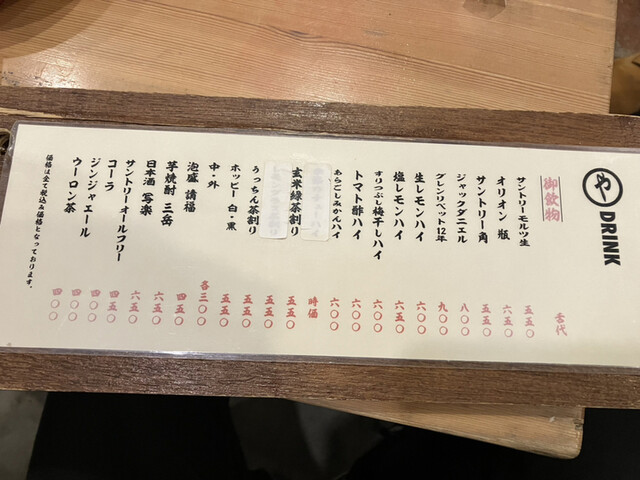 や DRINK
御飲物 舌代
サントリーモルツ生 五五〇
オリオン 瓶 六五〇
サントリー角 五五〇
ジャックダニエル 八〇〇
グレンリベット12年 九〇〇
生レモンハイ 六〇〇
塩レモンハイ 六五〇
すりつぶし梅干しハイ 六〇〇
トマト酢ハイ 六〇〇
あらごしみかんハイ 六〇〇
時価
玄米緑茶割り 五五〇
五五〇
うっちん茶割り 五五〇
ホッピー 白・黒 五五〇
中・外 各三〇〇
泡盛 請福 四五〇
芋焼酎 三岳 六五〇
日本酒 写楽 六五〇
サントリーオールフリー 四五〇
コーラ 四〇〇
ジンジャエール 四〇〇
ウーロン茶 四〇〇
価格は全て税込み価格となっております。